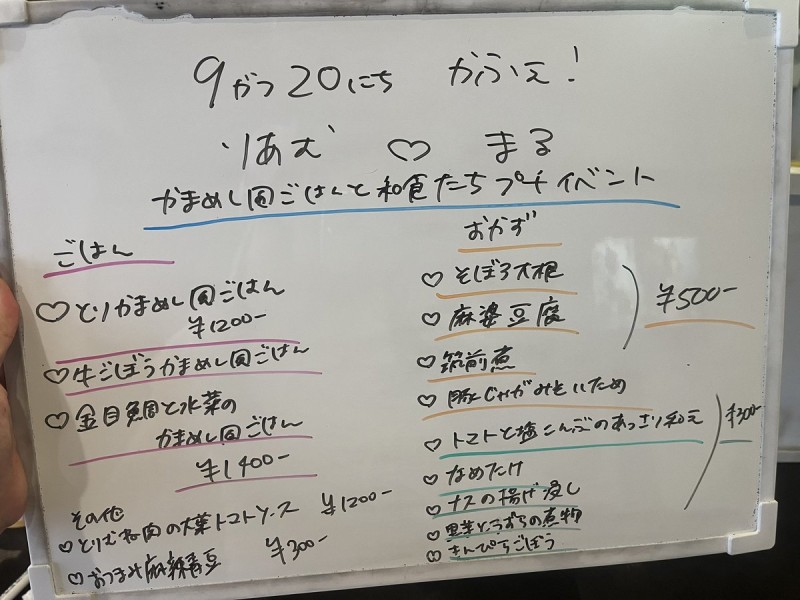 9がつ20にち かふぇ!
りあむ ♡ まる
かまめし風ごはんと和食たちプチイベント
ごはん
♡とりかまめし風ごはん
¥1200-
♡牛ごぼうかまめし風ごはん
♡金目鯛と水菜の
かまめし風ごはん
¥1400-
その他
♡とりむね肉の大葉トマトソース ¥1200-
♡おつまみ麻辣青豆 ¥300-
おかず
♡そぼろ大根
♡麻婆豆腐
¥500-
♡筑前煮
♡豚じゃがみそいため
♡トマトと塩こんぶのあっさり和え
¥300-
♡なめたけ
♡ナスの揚げ浸し
♡里芋とうずらの煮物
♡きんぴらごぼう